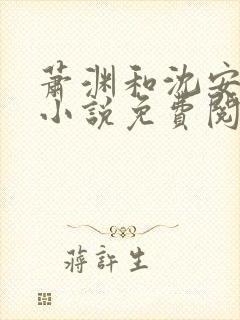 萧渊和沈安
小说免費閱
蒋許生